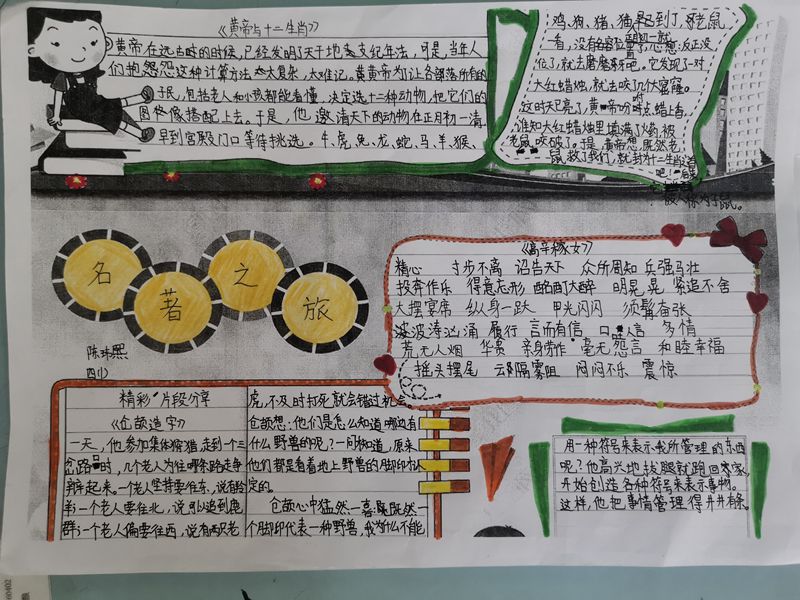 《黄帝与十二生肖》
黄帝在远古时的时候，已经发明了天干地支纪年法，可是，当年人
们抱怨怨这种计算方法太复杂，太难记。黄帝为让各部落所有的
子民，包括老人和小孩都能看懂，决定选十二种动物，把它们的
图像搭配上去。于是，他邀请天下的动物在正月初一清
早到宫殿及门口等待挑选。牛、虎、兔、龙、蛇、马、羊、猴、
鸡、狗、猪、猫都已到了，老鼠
一看，没有名容位置了，心想：反正没
位了，就去磨磨牙吧。它发现了一对
大红蜡烛，就去咬了几个大窟窿。
这时天已亮了，黄帝吩咐点蜡上香，
谁知大红蜡烛里填满了火药被
老鼠咬破了。于是，黄帝想，既然老
鼠救了我们，就封为十二生肖之首
吧！
名著之旅
陈玮熙
四(1)
《高辛嫁女》
精心 寸步不离 诏告天下 众所周知 兵强马壮
投奔作乐 得意忘形 酩酊大醉 明晃晃 紧追不舍
大摆宴席 纵身一跃 甲光闪闪 须髯奋张
波波涛汹涌 履行 言而有信 多情
荒无人烟 华贵 亲身劳作 毫无怨言 和睦幸福
摇头摆尾 云阻隔雾阻 闷闷不乐 震惊
精彩片段分享
《仓颉造字》
一天，他参加集体狩猎，走到一个三
岔路口时，几个老人为往哪条路走争
辩起来。一个老人坚持要往东，说有羚
羊；一个老人要往北，说可以追到鹿
群；一个老人偏要往西，说有两只老
虎，不及时打死就会错过机会。
仓颉想：他们是怎么知道哪边有
什么野兽的呢？一问知道，原来
他们都是看着地上野兽的脚印才认
定的。
仓颉心中猛然一喜：既然一
个脚印代表一种野兽，我为什么不能
用一种符号来表示我所管理的东西
呢？他高兴地拔腿就跑回家，
开始创造各种符号来表示事物。
这样，他把事情管理得井井有条。